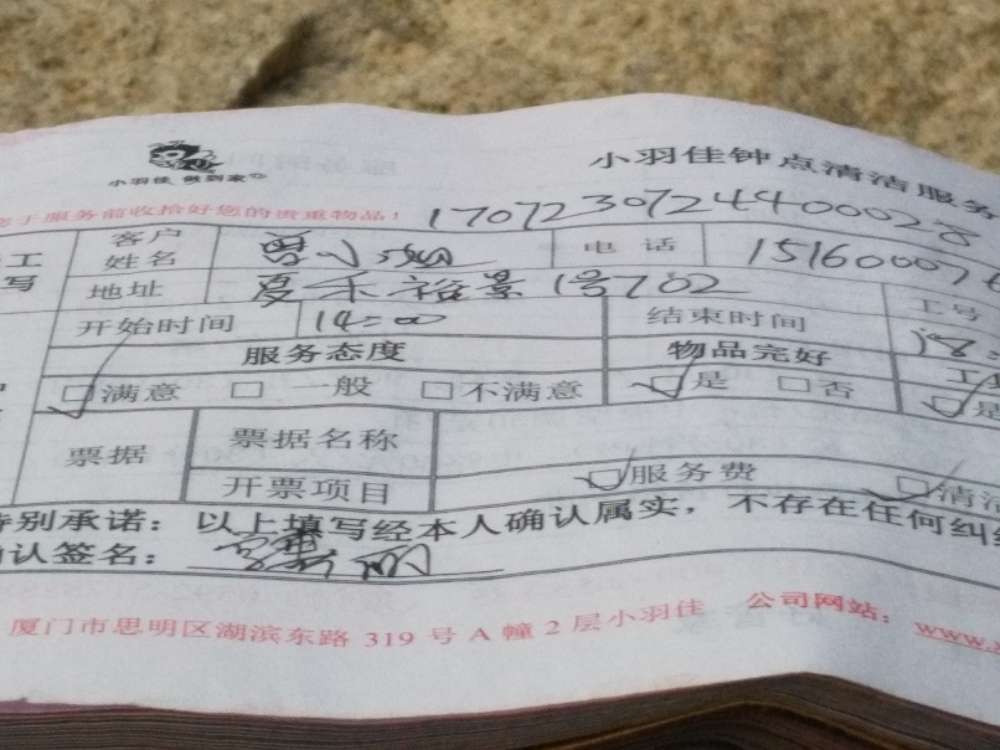 小羽佳 做到家
小羽佳钟点清洁服务
于服务前收拾好您的贵重物品！ 170723072440028
工 客户姓名 曾小姐 电 话 151600076
写 地址 夏禾裕景1号702
开始时间 14:00 结束时间 工号
服务态度 物品完好
满意 一般 不满意 是 否 是
票据 票据名称
开票项目 服务费 清洁
特别承诺：以上填写经本人确认属实，不存在任何纠
确认签名：
厦门市思明区湖滨东路 319 号 A 幢 2 层小羽佳 公司网站：www.